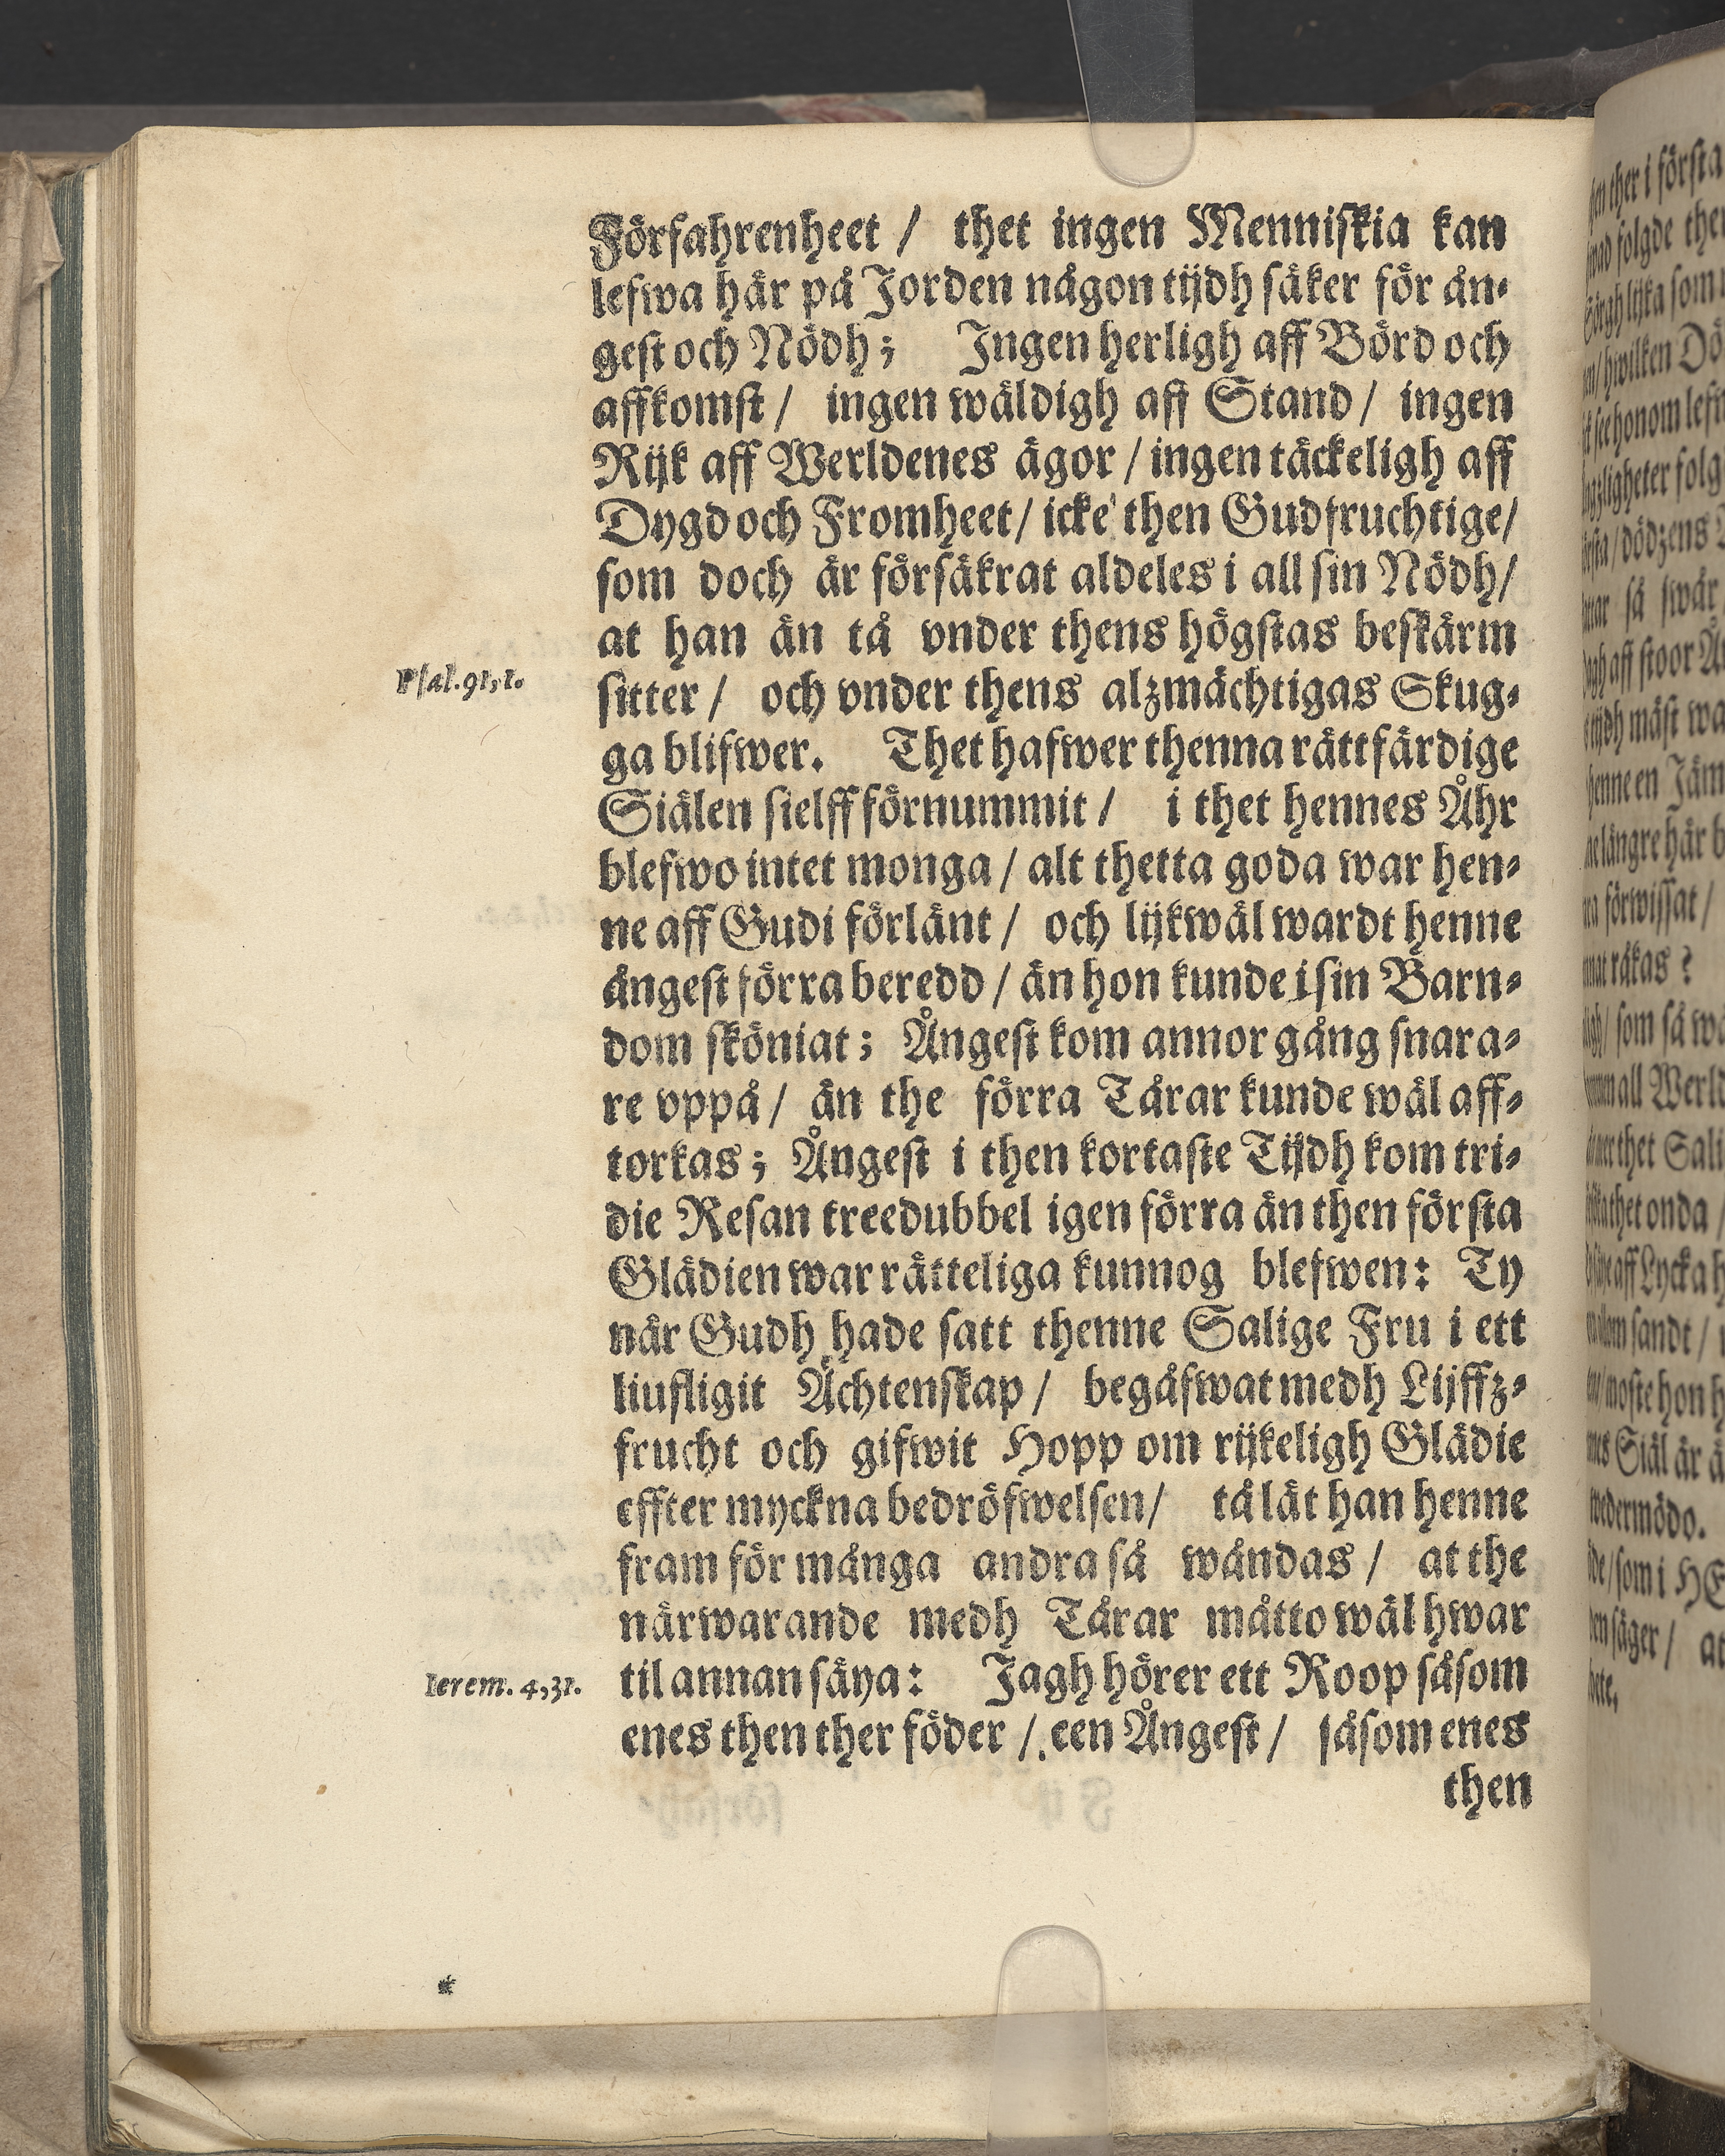 Förfahrenheet / thet ingen Menniskia kan
lefwa här på Jorden någon tijdh säker för ån-
gest och Nödh; Ingen herligh aff Börd och
affkomst / ingen wäldigh aff Stand / ingen
Rijk aff Werldenes ägor / ingen täckeligh aff
Dygd och Fromheet / icke then Gudfruchtige /
som doch är försäkrat aldeles i all sin Nödh /
at han än tå vnder thens högstas beskärm
Psal. 91, 1.
sitter / och vnder thens alzmächtigas Skug-
ga blifwer. Thet hafwer thenna rättfärdige
Siälen sielff förnummit / i thet hennes Åhr
blefwo intet monga / alt thetta goda war hen-
ne aff Gudi förlänt / och lijkwäl wardt henne
ångest förra beredd / än hon kunde i sin Barn-
dom sköniat; Ångest kom annor gång snara-
re vppå / än the förra Tårar kunde wäl aff-
torkas; Ångest i then kortaste Tijdh kom tri-
die Resan treedubbel igen förra än then första
Glädien war rätteliga kunnog blefwen: Ty
när Gudh hade satt thenne Salige Fru i ett
liufligit Ächtenskap / begåfwat medh Lijffz-
frucht och gifwit Hopp om rijkeligh Glädie
effter myckna bedröfwelsen / tå lät han henne
fram för många andra så wåndas / at the
närwarande medh Tårar måtto wäl hwar
Ierem. 4, 31.
til annan säya: Jagh hörer ett Roop såsom
enes then ther föder / een Ångest / såsom enes
then
*